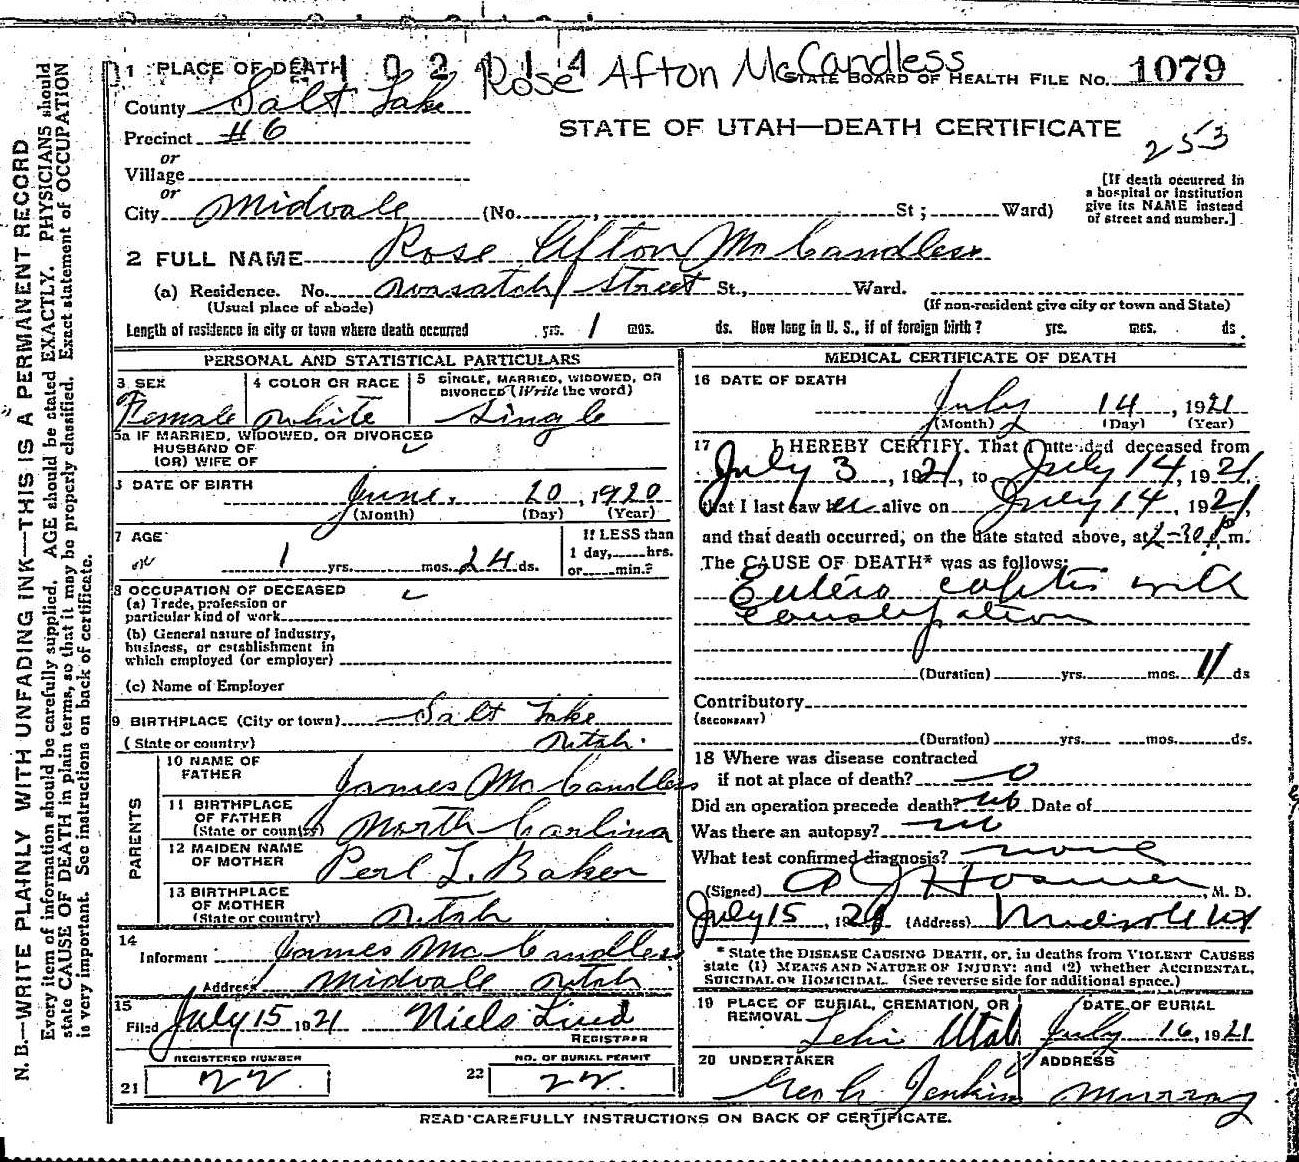 1 PLACE OF DEATH 102414 Rose Afton McCandless STATE BOARD OF HEALTH FILE NO. 1079
County Salt Lake
Precinct #6
STATE OF UTAH—DEATH CERTIFICATE
253
or
Village
or
City Midvale (No. , St ; Ward)
[If death occurred in
a hospital or institution
give its NAME instead
of street and number.]
2 FULL NAME Rose Afton McCandless
(a) Residence. No. Wasatch Street St., Ward.
(Usual place of abode) (If non-resident give city or town and State)
Length of residence in city or town where death occurred yrs. 1 mos. ds. How long in U. S., if of foreign birth? yrs. mos. ds.
PERSONAL AND STATISTICAL PARTICULARS
3 SEX
Female
4 COLOR OR RACE
White
5 SINGLE, MARRIED, WIDOWED, OR
DIVORCED (Write the word)
Single
5a IF MARRIED, WIDOWED, OR DIVORCED
HUSBAND OF
(OR) WIFE OF
DATE OF BIRTH
June. 20, 1920
(Month) (Day) (Year)
7 AGE
1 yrs. mos. 24 ds.
If LESS than
1 day, hrs.
or min.?
8 OCCUPATION OF DECEASED
(a) Trade, profession or
particular kind of work
(b) General nature of Industry,
business, or establishment in
which employed (or employer)
(c) Name of Employer
9 BIRTHPLACE (City or town) Salt Lake
(State or country) Utah.
PARENTS
10 NAME OF
FATHER James McCandless
11 BIRTHPLACE
OF FATHER
(State or country) North Carlina
12 MAIDEN NAME
OF MOTHER Perl L. Baker
13 BIRTHPLACE
OF MOTHER
(State or country) Utah
14
Informent James McCandless
Address Midvale Utah
15
Filed July 15 1921 Niels Lind
REGISTRAR
REGISTERED NUMBER
21 22
NO. OF BURIAL PERMIT
22 22.
MEDICAL CERTIFICATE OF DEATH
16 DATE OF DEATH
July 14, 1921
(Month) (Day) (Year)
17 I HEREBY CERTIFY. That I attended deceased from
July 3, 1921, to July 14, 1921,
that I last saw her alive on July 14, 1921,
and that death occurred, on the date stated above, at 2-30 p m.
The CAUSE OF DEATH* was as follows:
Entero colitis with
Constipation
(Duration) yrs. mos. 11 ds
Contributory
(SECONDARY)
(Duration) yrs. mos. ds.
18 Where was disease contracted
if not at place of death? 0
Did an operation precede death? no Date of
Was there an autopsy? no
What test confirmed diagnosis? none
(Signed) A J Hosmer, M. D.
July 15, 1921 (Address) Midvale Ut
* State the DISEASE CAUSING DEATH, or, in deaths from VIOLENT CAUSES
state (1) MEANS AND NATURE OF INJURY: and (2) whether ACCIDENTAL,
SUICIDAL OR HOMICIDAL. (See reverse side for additional space.)
19 PLACE OF BURIAL, CREMATION, OR
REMOVAL Lehi Utah
DATE OF BURIAL
July 16, 1921
20 UNDERTAKER
Geo Jenkins
ADDRESS
Murray
READ CAREFULLY INSTRUCTIONS ON BACK OF CERTIFICATE.
N. B.—WRITE PLAINLY WITH UNFADING INK—THIS IS A PERMANENT RECORD
Every item of information should be carefully supplied. AGE should be stated EXACTLY. PHYSICIANS should
state CAUSE OF DEATH in plain terms, so that it may be properly classified. Exact statement of OCCUPATION
is very important. See instructions on back of certificate.